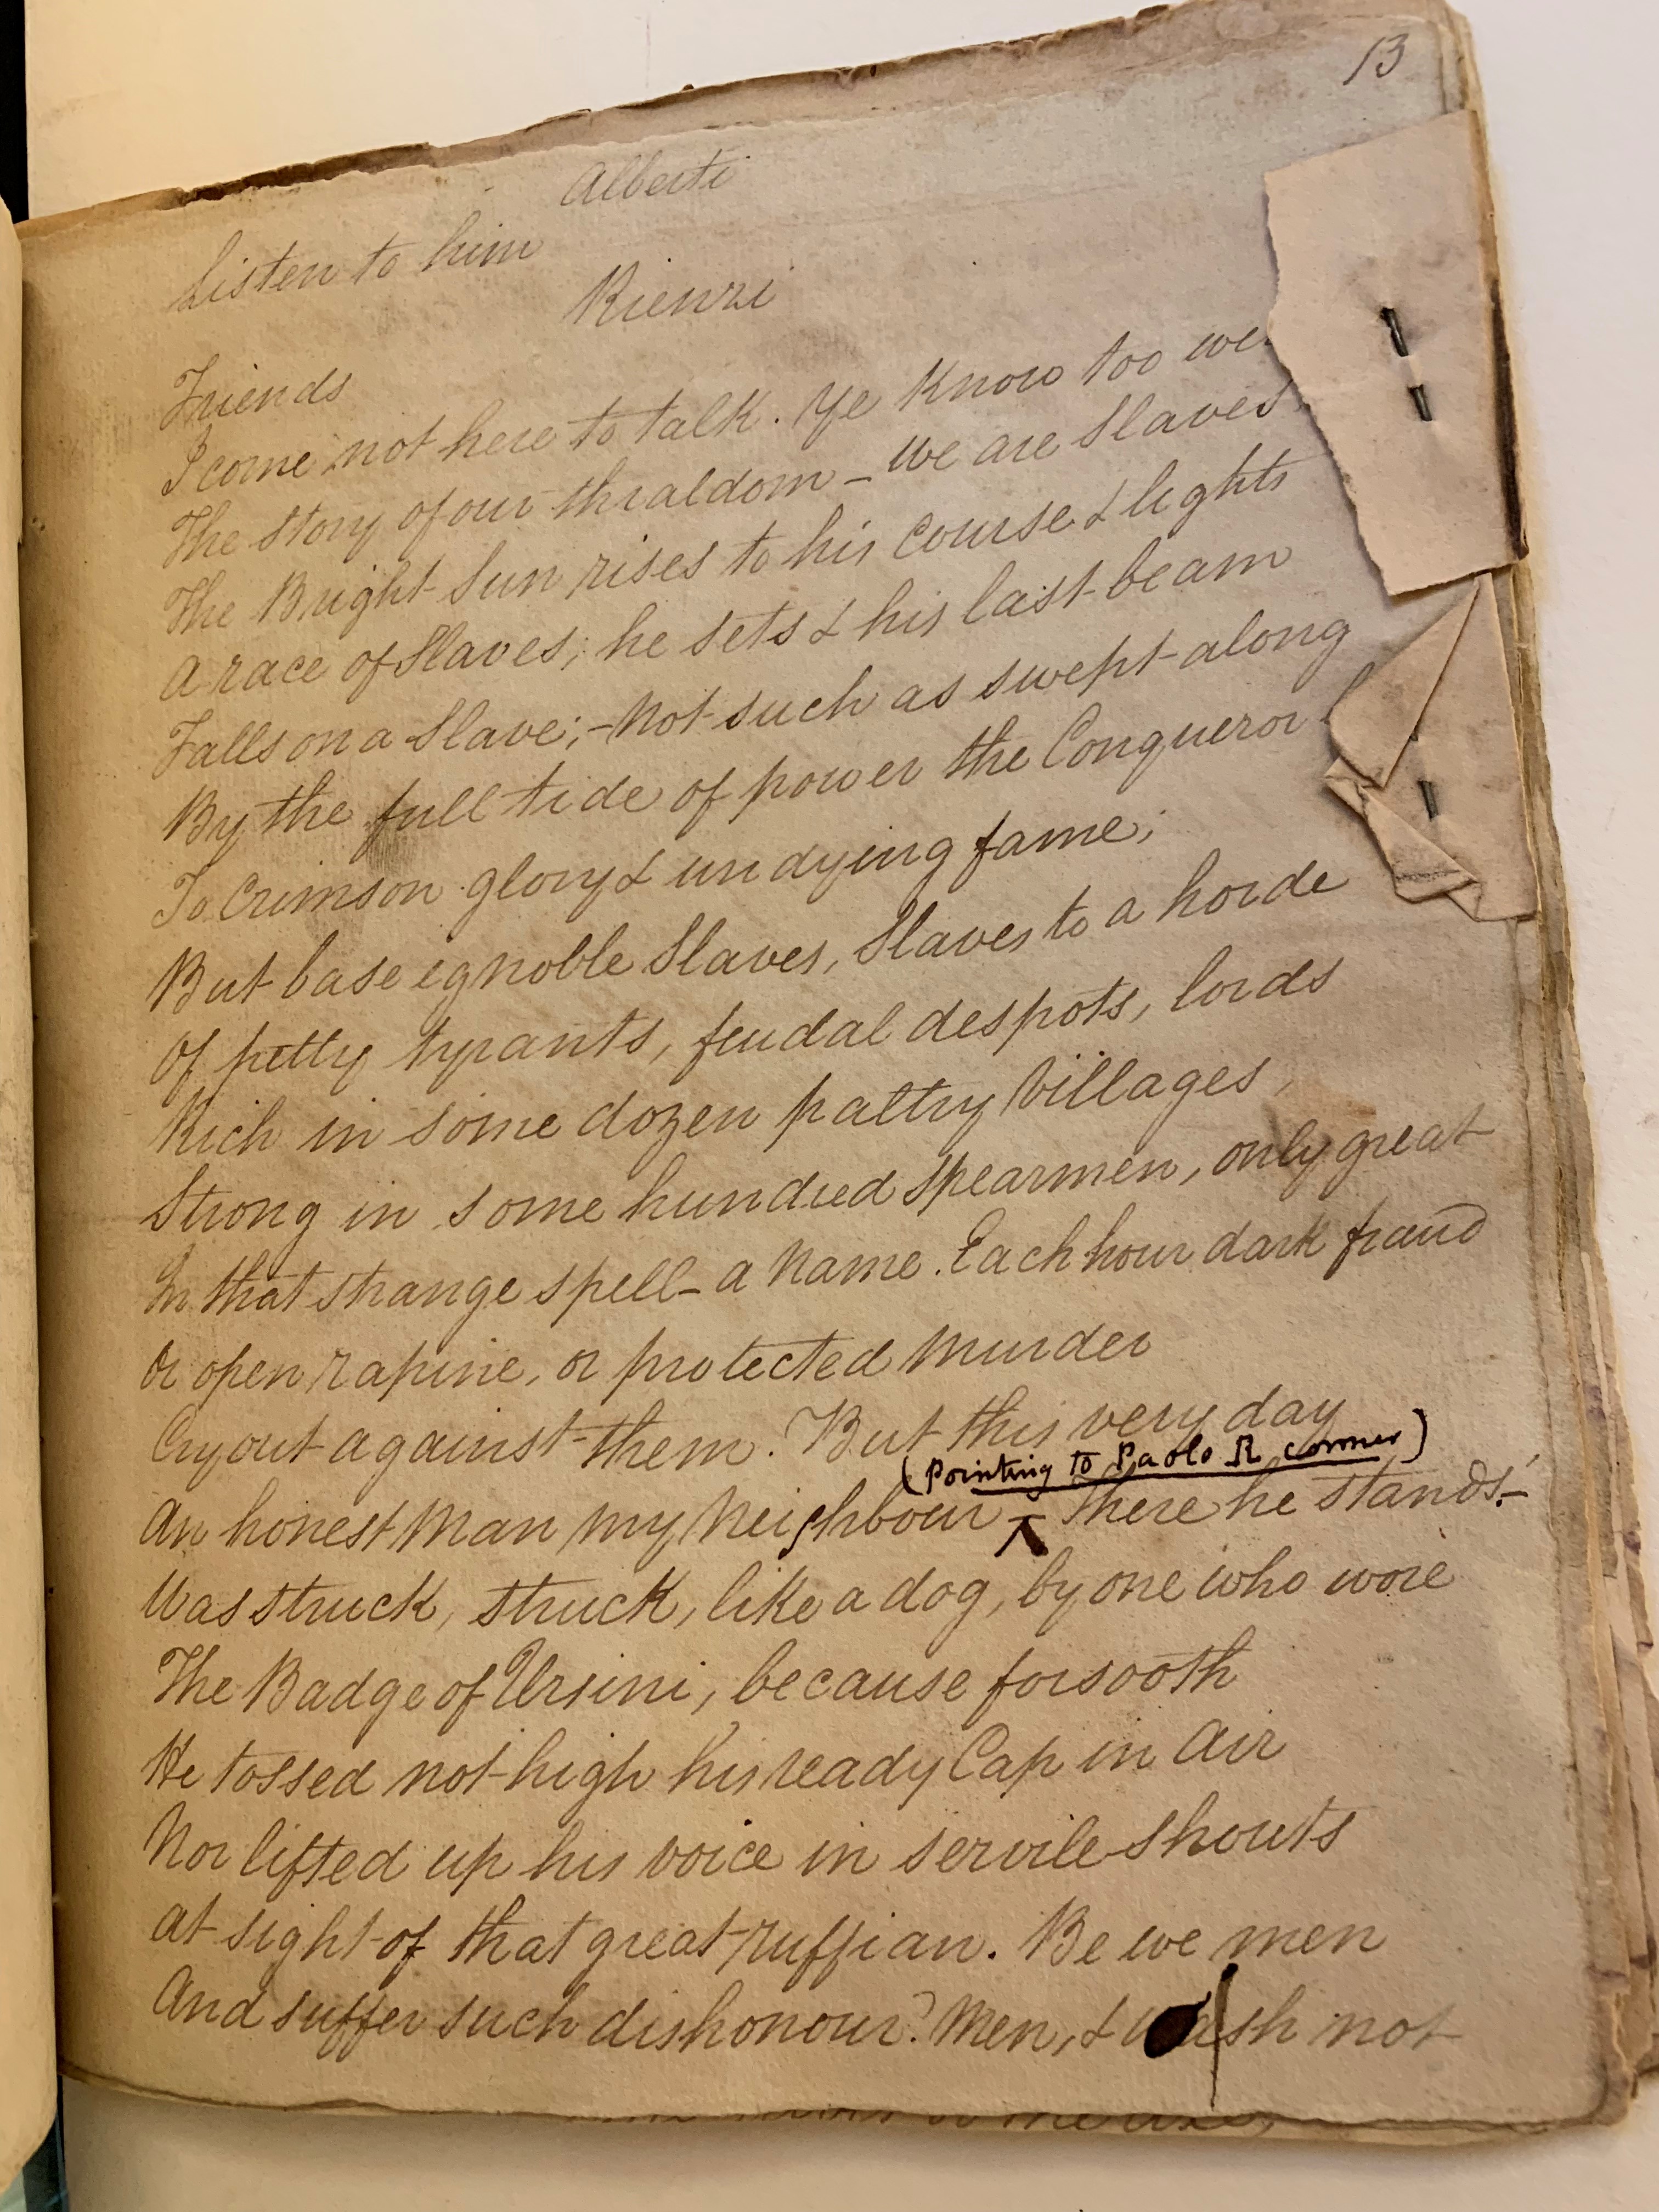 13
Alberti
Listen to him
Rienzi
Friends
I come not here to talk. Ye Know too we
The story of our thraldom – We are Slaves,
The Bright Sun rises to his Course & lights
A race of Slaves; he sets & his last beam
Falls on a Slave; – Not such as swept along
By the full tide of power the Conqueror
To Crimson glory & undying fame;
But base ignoble Slaves, Slaves to a horde
Of petty tyrants, feudal despots, lords
Rich in some dozen paltry Villages,
Strong in some hundred Spearmen, only great
In that strange spell – a Name. Each hour dark fraud
Or open rapine, or protected Murder
Cry out against them. But this very day
(Pointing to Paolo R corner)
An honest Man my Neighbour – There he stands! –
Was struck, struck, like a dog, by one who wore
The Badge of Ursini, because forsooth
He tossed not high his ready Cap in Air
Nor lifted up his voice in servile Shouts
At sight of that great ruffian. Be we men
And suffer such dishonour? Men, & wash not